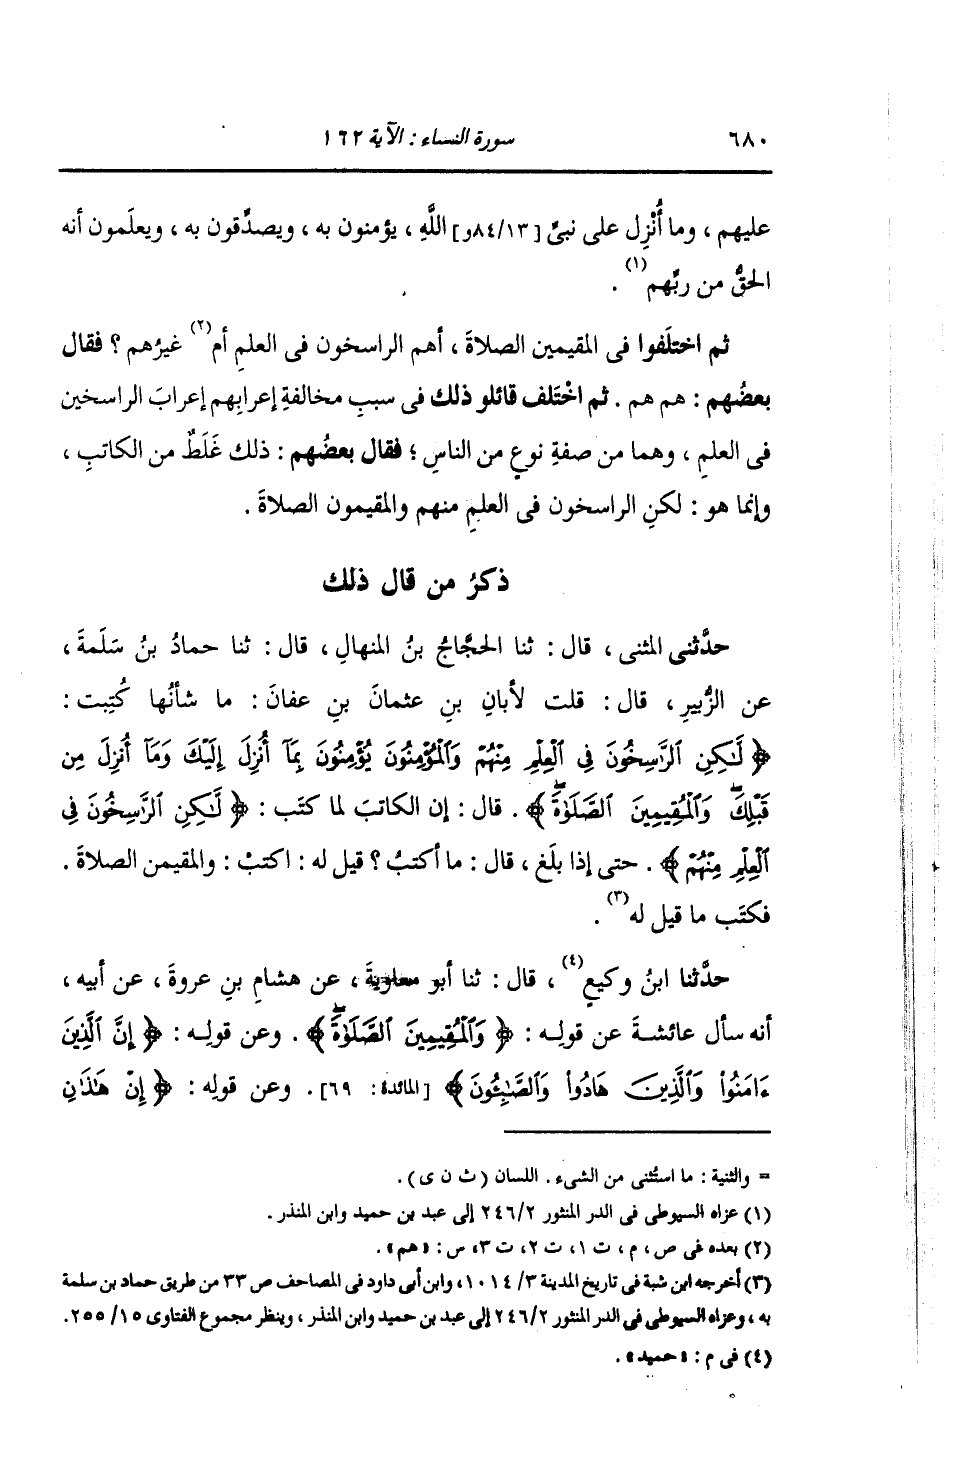 ٦٨٠ سورة النساء : الآية ١٦٢
عليهم ، وما أُنْزِل على نبىِّ [٨٤/١٣و] اللَّهِ ، يؤمنون به ، ويصدِّقون به ، ويعلَمون أنه
الحقُّ من ربِّهم(١) .
ثم اختلَفوا فى المقيمين الصلاةَ ، أهم الراسخون فى العلمِ أم(٢) غيرُهم ؟ فقال
بعضُهم : هم هم . ثم اخْتَلف قائلو ذلك فى سببِ مخالفةِ إعرابِهم إعرابَ الراسخين
فى العلمِ ، وهما من صفةِ نوعٍ من الناسِ ؛ فقال بعضُهم : ذلك غَلَطٌ من الكاتبِ ،
وإنما هو : لكنِ الراسخون فى العلمِ منهم والمقيمون الصلاةَ .
ذكرُ من قال ذلك
حدَّثنى المثنى ، قال : ثنا الحجَّاجُ بنُ المنهالِ ، قال : ثنا حمادُ بنُ سَلَمةَ ،
عن الزُّبيرِ ، قال : قلت لأبانِ بنِ عثمانَ بنِ عفانَ : ما شأنُها كُتِبت :
﴿ لَّٰكِنِ ٱلرَّٰسِخُونَ فِى ٱلْعِلْمِ مِنْهُمْ وَٱلْمُؤْمِنُونَ يُؤْمِنُونَ بِمَآ أُنزِلَ إِلَيْكَ وَمَآ أُنزِلَ مِن
قَبْلِكَ وَٱلْمُقِيمِينَ ٱلصَّلَوٰةَ ﴾ . قال : إن الكاتبَ لما كتَب : ﴿ لَّٰكِنِ ٱلرَّٰسِخُونَ فِى
ٱلْعِلْمِ مِنْهُمْ ﴾ . حتى إذا بلَغ ، قال : ما أكتبُ ؟ قيل له : اكتبْ : والمقيمن الصلاةَ .
فكتَب ما قيل له(٣) .
حدَّثنا ابنُ وكيعٍ(٤) ، قال : ثنا أبو معاويةَ ، عن هشامِ بنِ عروةَ ، عن أبيه ،
أنه سأل عائشةَ عن قولِه : ﴿ وَٱلْمُقِيمِينَ ٱلصَّلَوٰةَ ﴾ . وعن قولِه : ﴿ إِنَّ ٱلَّذِينَ
ءَامَنُوا۟ وَٱلَّذِينَ هَادُوا۟ وَٱلصَّٰبِـُٔونَ ﴾ [المائدة: ٦٩]. وعن قولِه : ﴿ إِنْ هَٰذَٰنِ
= والثنية : ما استُثنى من الشىء . اللسان ( ث ن ى ) .
(١) عزاه السيوطى فى الدر المنثور ٢٤٦/٢ إلى عبد بن حميد وابن المنذر .
(٢) بعده فى ص ، م ، ت ١، ت ٢، ت ٣، س : «هم» .
(٣) أخرجه ابن شبة فى تاريخ المدينة ٣/ ١٠١٤، وابن أبى داود فى المصاحف ص ٣٣ من طريق حماد بن سلمة
به ، وعزاه السيوطى فى الدر المنثور ٢٤٦/٢ إلى عبد بن حميد وابن المنذر ، وينظر مجموع الفتاوى ١٥/ ٢٥٥.
(٤) فى م : «حميد» .